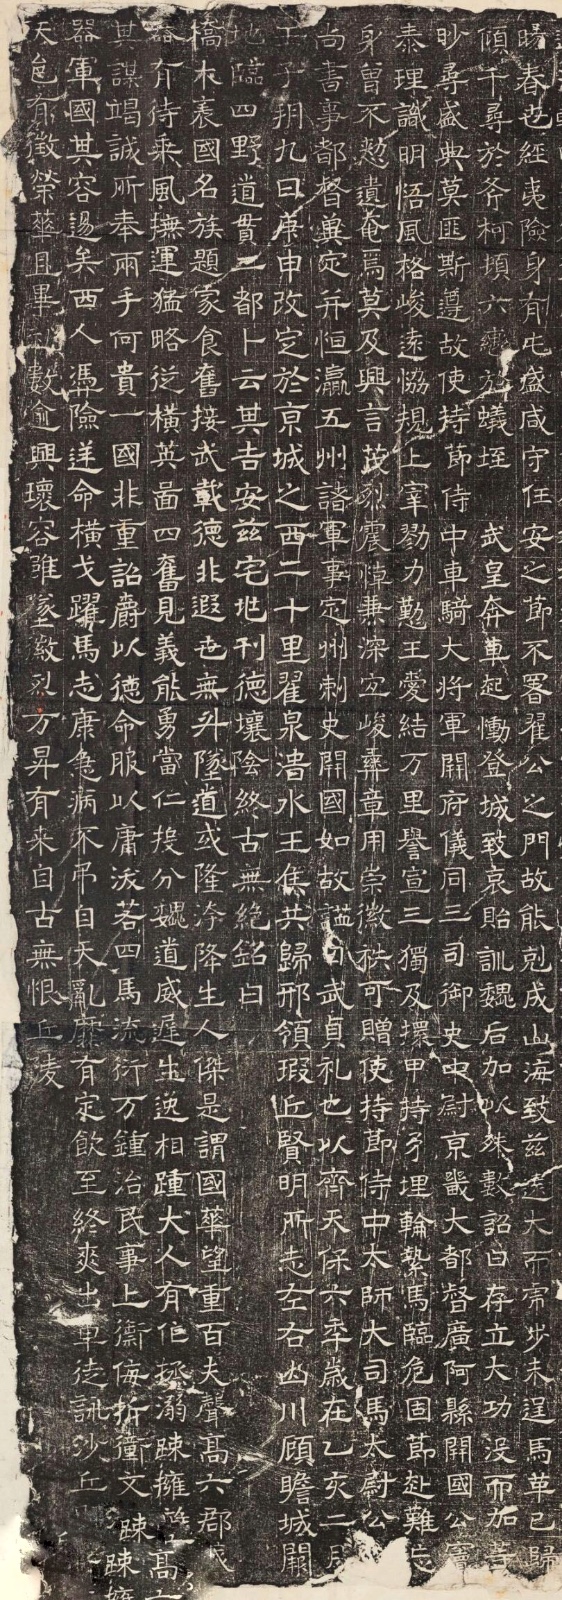 暘春也經夷險身有屯盛咸守任安之節不署翟公之門故能剋成山海致茲遠大而帝步未遑馬革已歸
傾千尋於斧柯頃六轡於蟻垤 武皇奔車起慟登城致哀貽訓魏后加以殊數詔曰存立大功沒而加等
眇尋盛典莫匪斯遵故使持節侍中車騎大將軍開府儀同三司御史中尉京畿大都督廣阿縣開國公竇
泰理識明悟風格峻遠恊規上宰勠力勤王爰結万里譽宣三獨及擐甲持矛埋輪縶馬臨危固節赴難忘
身曾不憖遺奄焉莫及興言茂烈震悼兼深宜峻彝章用崇徽秩可贈使持節侍中太師大司馬太尉公
尚書事都督冀定并恒瀛五州諸軍事定州刺史開國如故謚曰武貞礼也以齊天保六年歲在乙亥二月
壬子朔九日庚申改定於京城之西二十里翟泉涽水王雋共歸邢領瑕丘賢明所志左右山川顧瞻城闕
地臨四野道貫二都卜云其吉安兹宅地刊德壤陰終古無絕銘曰
橋木表國名族題家食舊接武載德非遐世無升墜道或隆洿降生人傑是謂國華望重百夫聲高六郡
有待乘風撫運猛略從橫英啚四奮見義能勇當仁投分魏道威遲生逸相踵大人有作拯溺疎擁高
其謀竭誠所奉兩手何貴一國非重詔爵以德命服以庸茷若四馬流衍万鍾治民事上禦侮折衝文
器軍國其容逷矣西人憑險逆命橫戈躍馬志康急病不弔自天亂靡有定飲至終爽出車徒詠沙丘
天邑有徵榮華且畢數逾興壞容雖墜徽烈方昇有来自古無恨丘陵